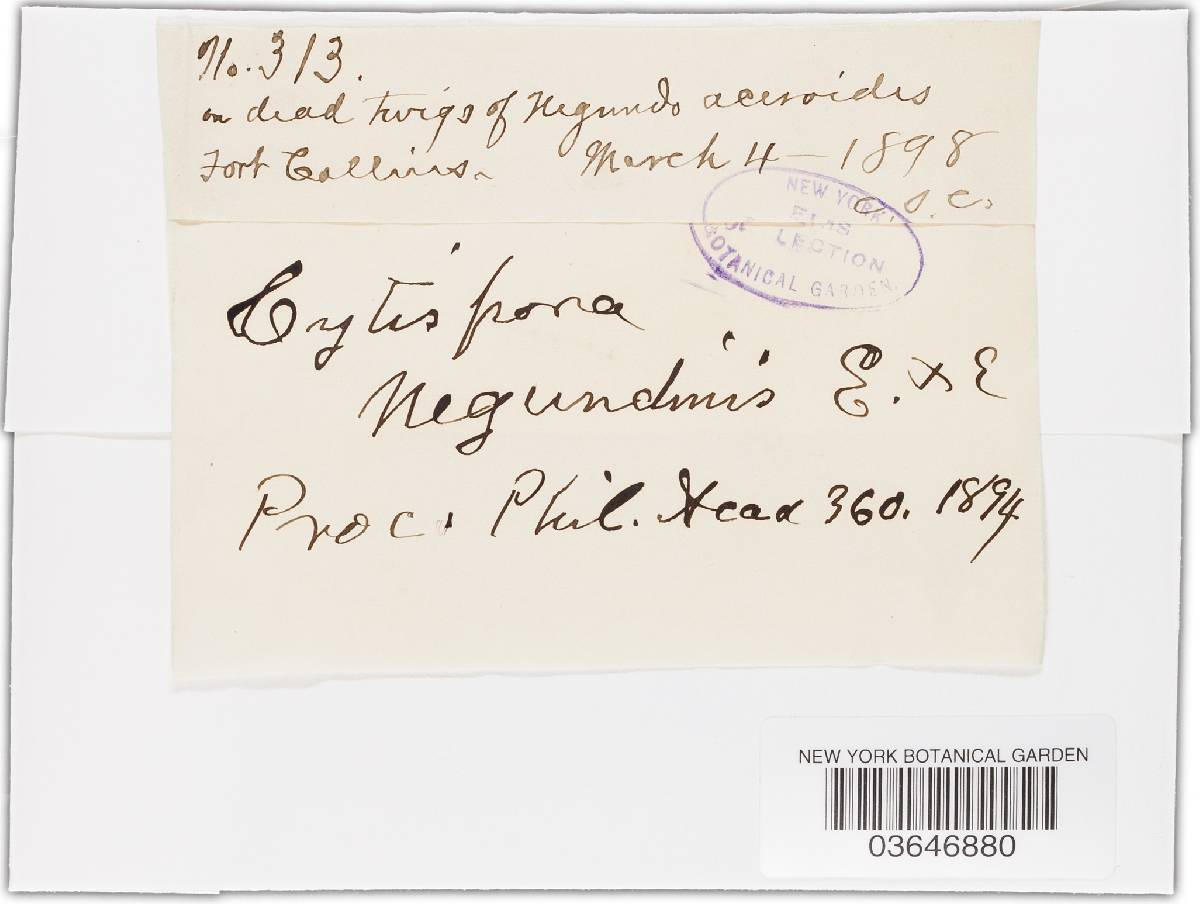 No. 313.
on dead twigs of Negundo aceroides
Fort Collins. March 4 - 1898
C. S. C.
NEW YORK
ELLIS
COLLECTION
BOTANICAL GARDEN.
Cytispora
Negundinis E. & E
Proc. Phil. Acad 360. 1894
NEW YORK BOTANICAL GARDEN
03646880